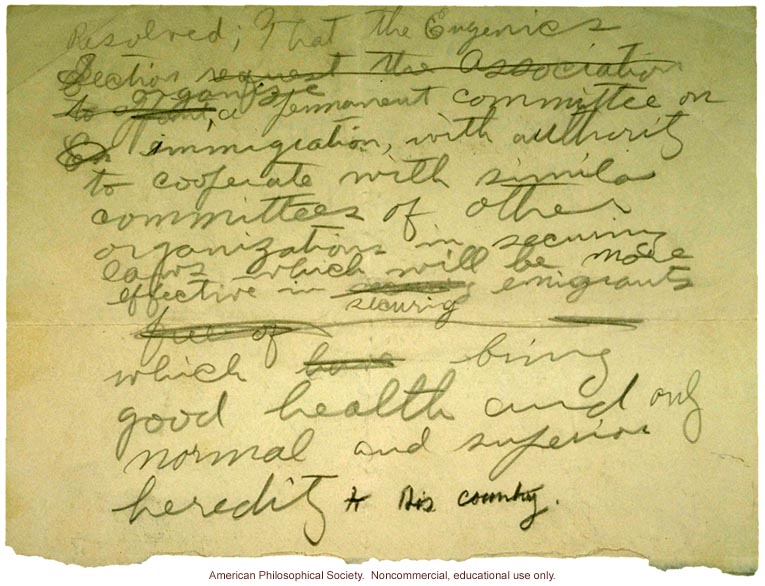 Resolved; That the Eugenics
Section request the Association
organize
to appoint a permanent committee on
immigration, with authority
to cooperate with simila
committees of other
organizations in securing
laws which will be more
effective in emigrants
securig
free of
which have bring
good health and only
normal and superior
heredity to this country.
American Philosophical Society. Noncommercial, educational use only.